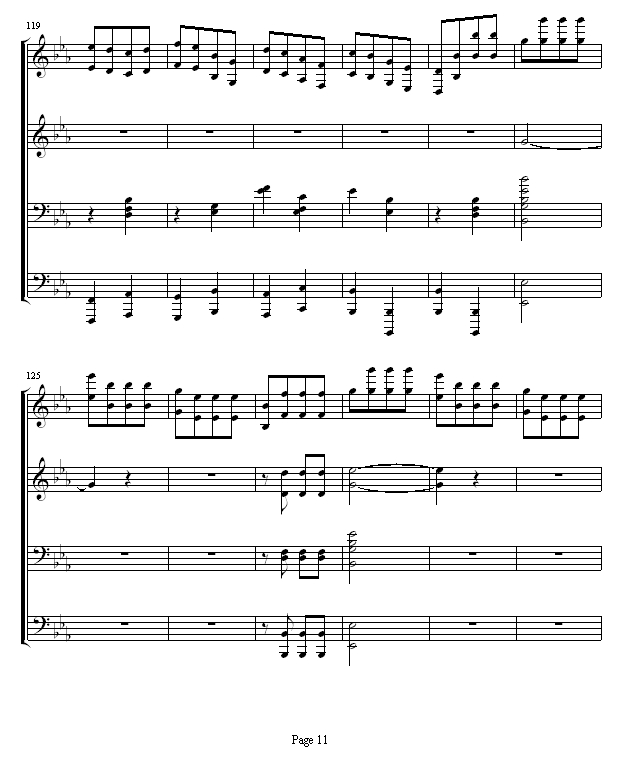 119
125
Page 11